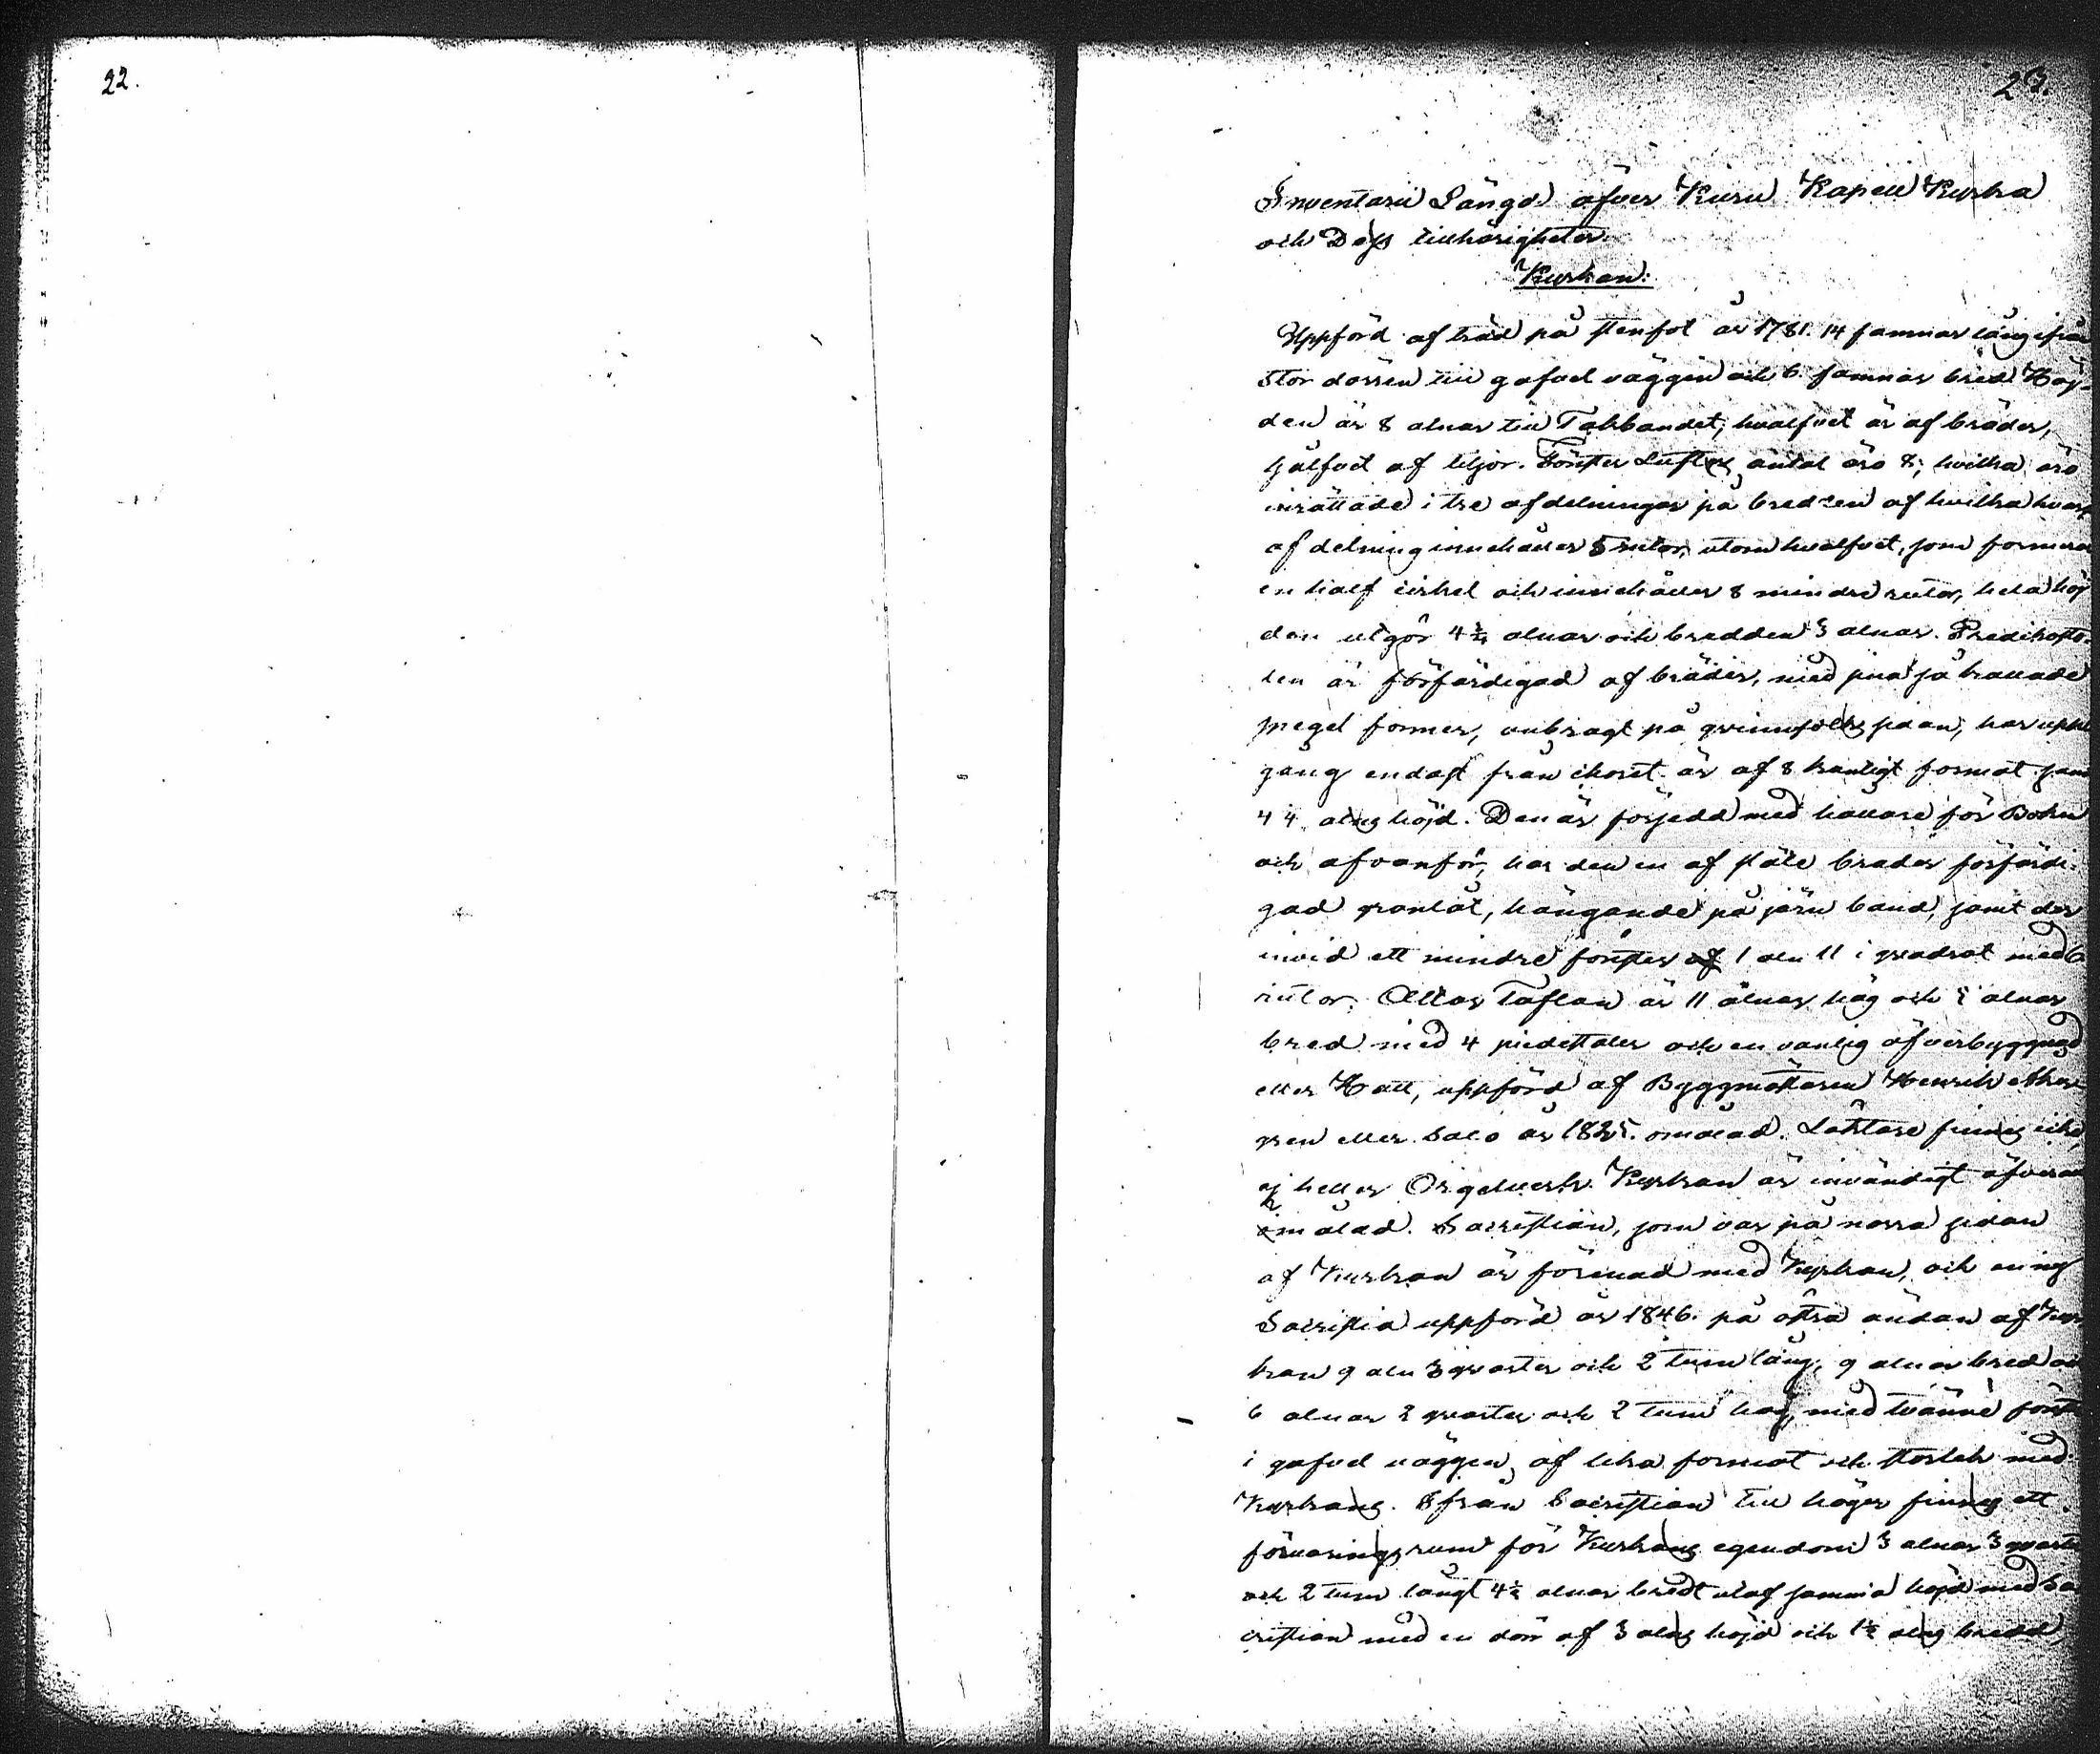 22.
23.
Inventarii Längd öfver Kuru Kapell Kyrka
och Dess tillhörigheter.
Kyrkan:
Uppförd af träd på stenfot år 1781. 14 famnar lång ifrån
Stor dörren till gafvel väggen och 6 famnar bred Höj-
den är 8 alnar till Takbandet, hvalfvet är af bräder,
Fönster Lufters antal äro 8, hvilka äro
inrättade i tre afdelningar på bredden af hvilka hvar
afdelning innehåller 5 rutor, utom hvalfvet, som formerar
en half cirkel och innehåller 8 mindre rutor, hela höj
den utgör 4 ¾ alnar och bredden 3 alnar. Predikosto-
len är förfärdigad af bräder, med sina så kallade
spegel former, anbragt på qvinnfolks sidan, har upp
gång endast från choret är af 8 kantigt format samt
4 alns höjd. Den är försedd med hållare för Boken
och ofvanför, har den en af släte bräder förfärdi-
gad granlåt, hängande på järn band, samt der
invid ett mindre fönster af 1 aln 11 i qvadrat med 6
rutor. Altar Taflan är 11 alnar hög och alnar
bred med 4 piedestaler och en vanlig öfverbyggnad
eller Hatt, uppförd af Byggmästaren Henrik
gren eller Salo år omålad. Läktare finnes icke
ej heller Orgelverk. Kyrkan är invändigt öfveralt
omålad. Sacristian, som var på norra sidan
af Kyrkan är förenad med Kyrkan, och en ny
Sacristia uppförd år 1846. på östra ändan af Kyr
kan 9 aln 3 qvarter och 2 tum lång, 9 alnar bred och
6 alnar 2 qvarter och 2 tum hög, med tvänne fönster
i gafvel väggen, af lika format och storlek med
Kyrkans. Ifrån Sacristian till höger finnes ett
förvaringsrum för Kyrkans egendom 3 alnar 3 qvarter
och 2 tum långt 4 ½ alnar bredt utaf samma höjd med Sa
cristian med en dörr af 3 alns höjd och 1 ½ alns bredd,